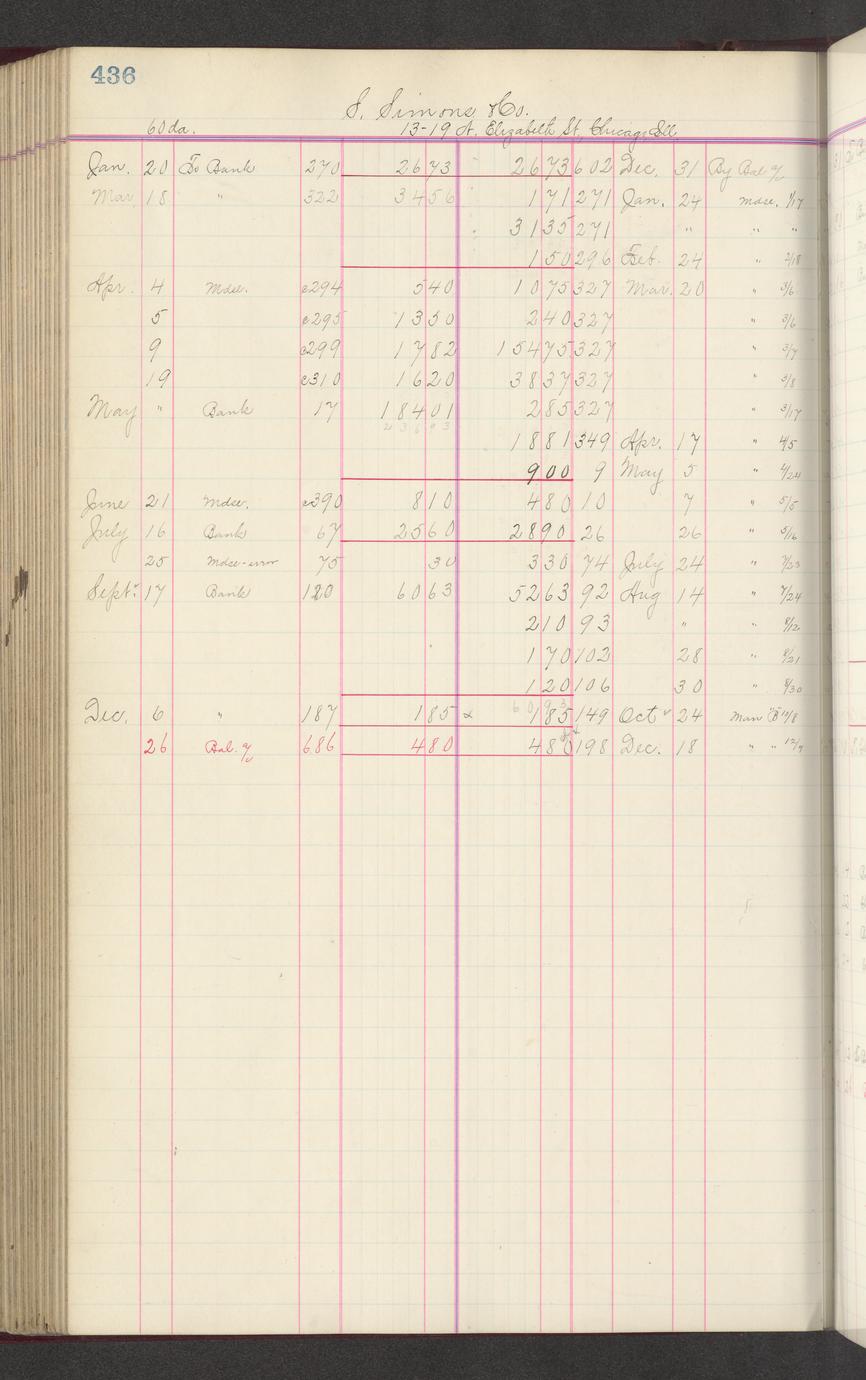 436
S. Simons & Co.
60 da. 13-19 N. Elizabeth St, Chicago Ill
Jan. 20 To Bank 270 26 73 26 73 602 Dec. 31 By Bal %
Mar. 18 " 322 34 56 1 71 271 Jan. 24 mdse. 1/17
31 35 271 " " "
1 50 296 Feb. 24 " 2/18
Apr. 4 Mdse. c294 5 40 10 75 327 Mar. 20 " 3/6
5 c295 13 50 2 40 327 " 3/6
9 c299 17 82 154 75 327 " 3/7
19 c310 16 20 38 37 327 " 3/8
May " Bank 17 184 01 2 85 327 " 3/17
236 93
18 81 349 Apr. 17 " 4/5
9 00 9 May 5 " 4/24
June 21 Mdse. c390 8 10 4 80 10 7 " 5/5
July 16 Bank 67 25 60 28 90 26 26 " 5/16
25 Mdse-error 75 30 3 30 74 July 24 " 7/23
Sept. 17 Bank 120 60 63 52 63 92 Aug 14 " 7/24
2 10 93 " " 8/12
1 70 102 28 " 8/21
1 20 106 30 " 8/30
Dec. 6 " 187 1 85 1 85 149 Oct 24 Man "B" 10/8
26 Bal. % 686 4 80 4 80 198 Dec. 18 " " 12/7